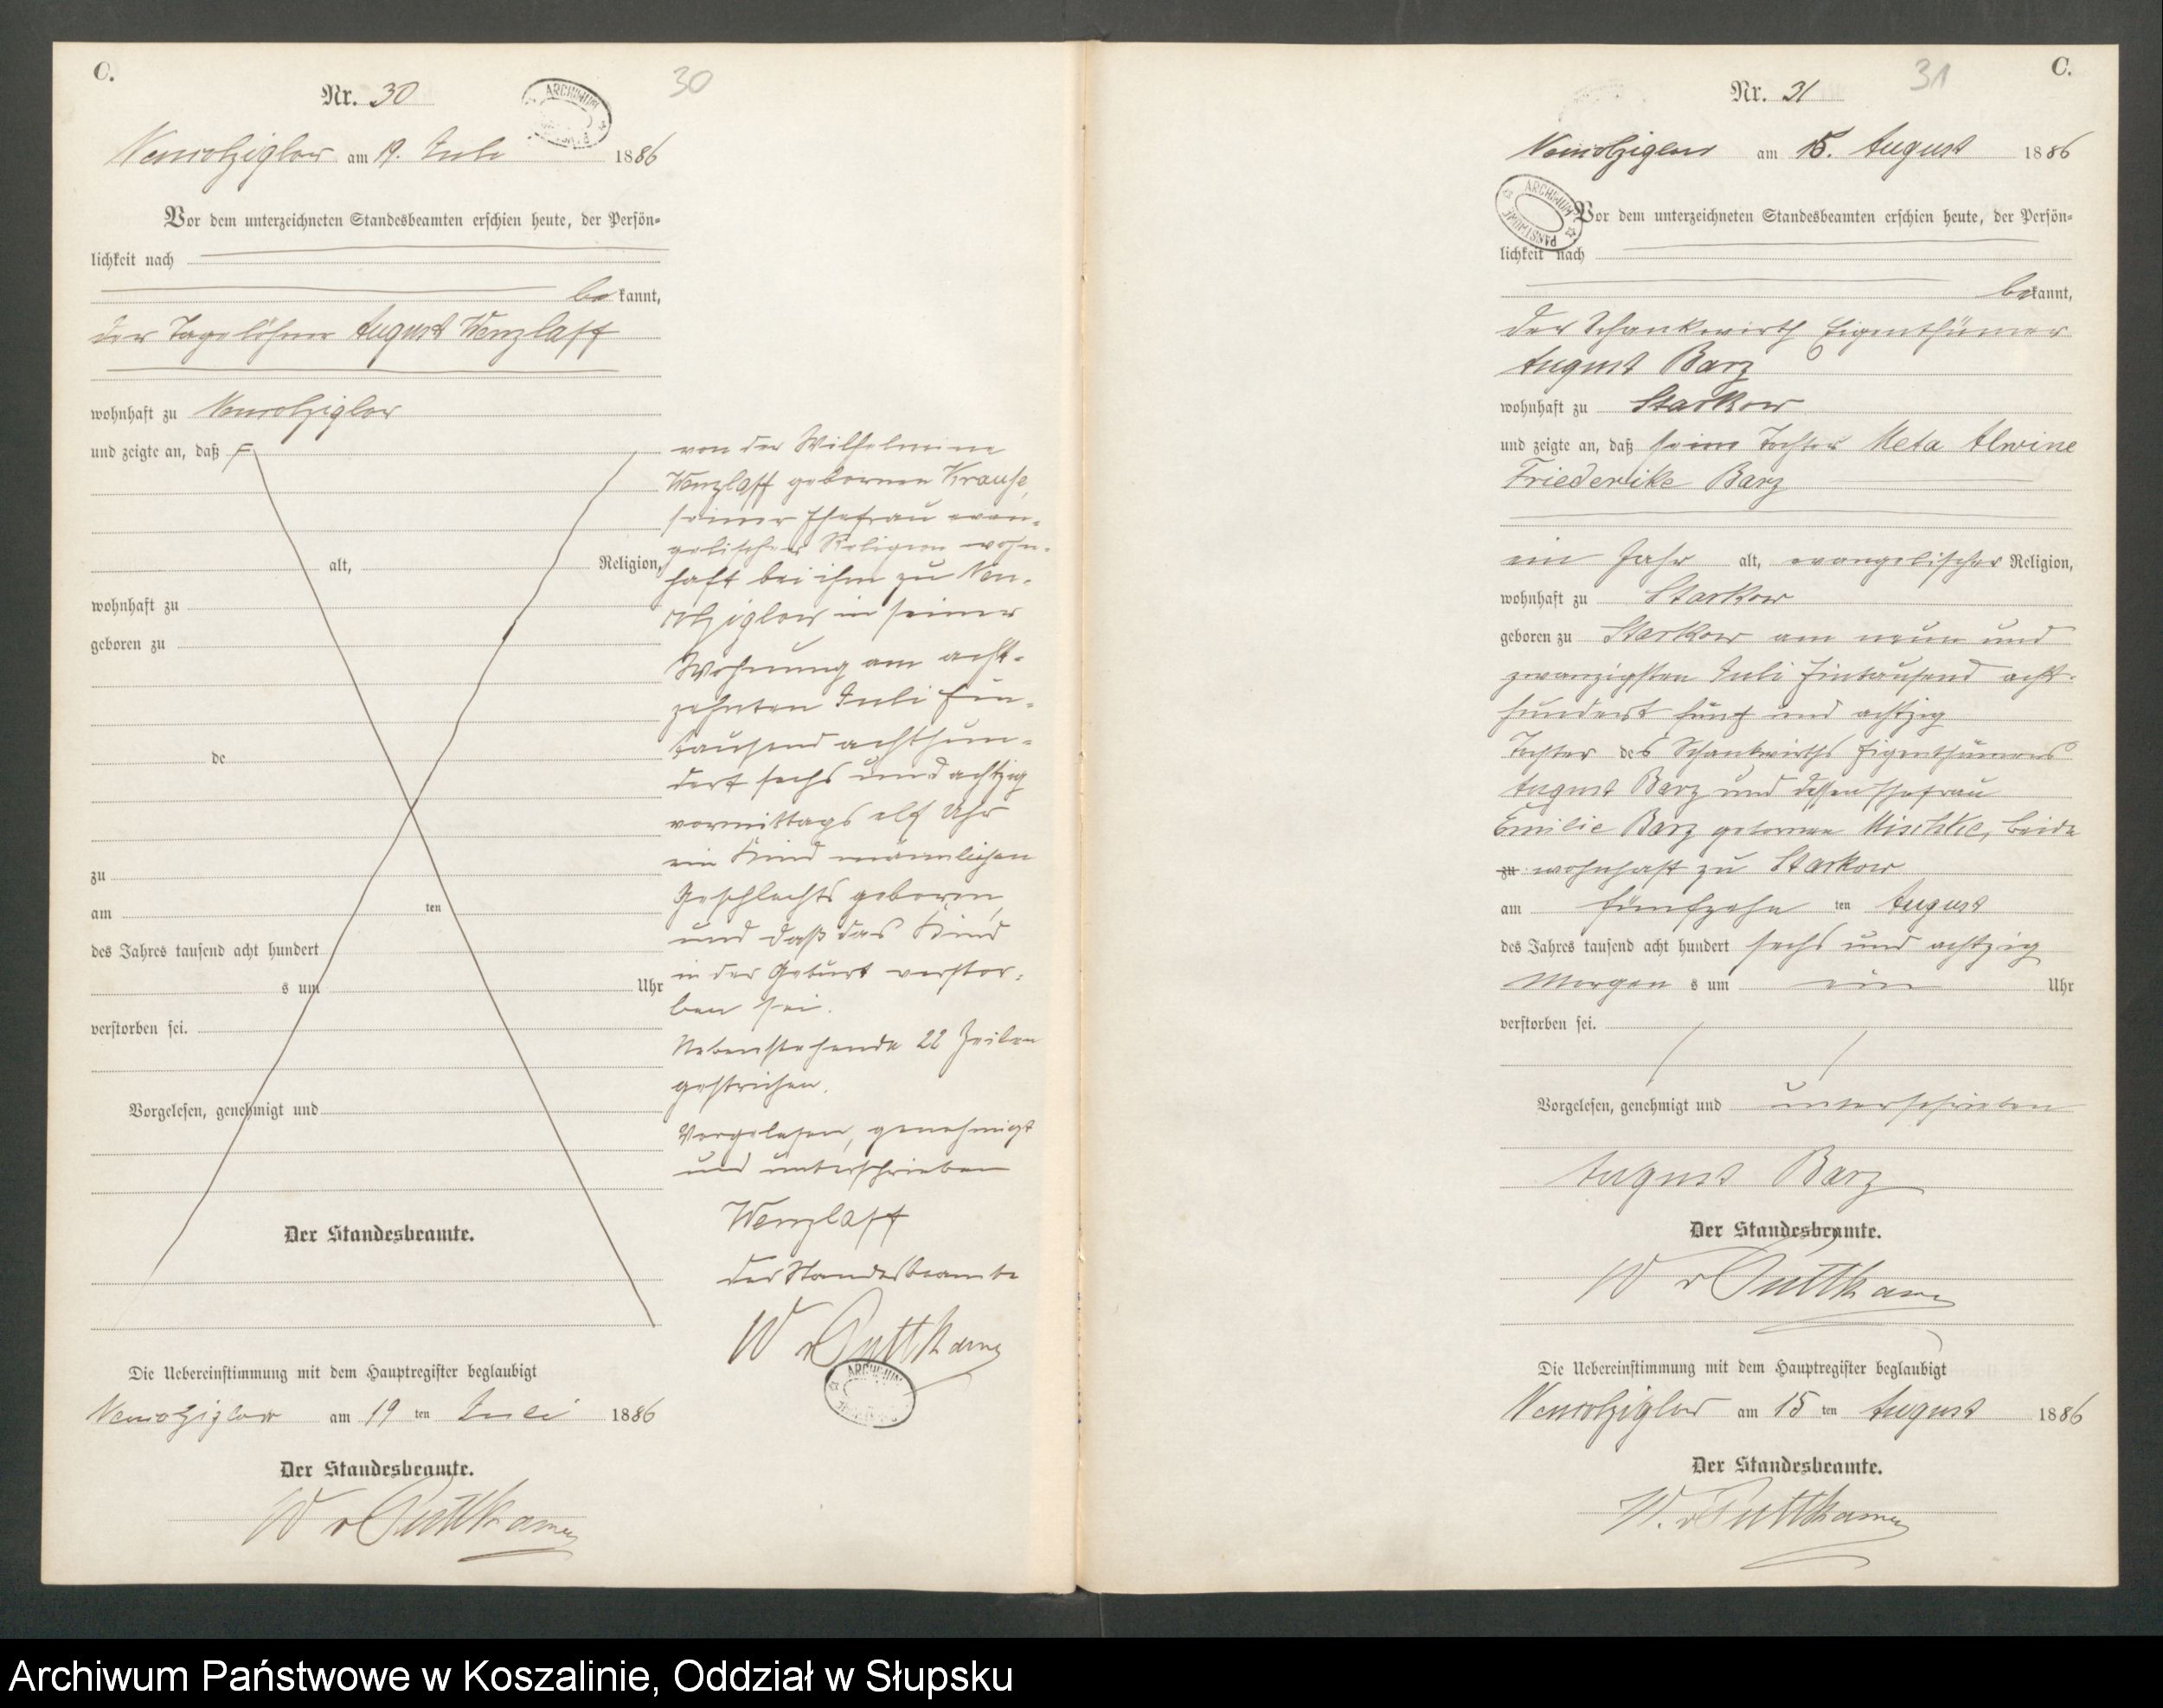 C.
Nr. 30
30
ARCHIWUM
Neuolziglow am 19. Juli 1886
Vor dem unterzeichneten Standesbeamten erschien heute, der Persön-
lichkeit nach
be kannt,
der Tagelöhner August Wenzlaff
wohnhaft zu Neuolziglow
und zeigte an, daß
alt, Religion,
wohnhaft zu
geboren zu
de
zu
am ten
des Jahres tausend acht hundert
s um Uhr
verstorben sei.
Vorgelesen, genehmigt und
Der Standesbeamte.
von der Wilhelmine
Wenzlaff gebornen Krause,
seiner Ehefrau evan-
gelischer Religion wohn-
haft bei ihm zu Neu-
olziglow in seiner
Wohnung am acht-
zehnten Juli Ein-
tausend achthun-
dert sechs und achtzig
vormittags elf Uhr
ein Kind männlichen
Geschlechts geboren,
und daß das Kind
in der Geburt verstor-
ben sei.
Nebenstehende 22 Zeilen
gestrichen.
Vorgelesen, genehmigt
und unterschrieben
Wenzlaff
der Standesbeamte
W v Puttkamer
ARCHIWUM
Die Uebereinstimmung mit dem Hauptregister beglaubigt
Neuolziglow am 19 ten Juli 1886
Der Standesbeamte.
W v Puttkamer
C.
Nr. 31
31
Neuolziglow am 15. August 1886
ARCHIWUM PAŃSTWOWE
Vor dem unterzeichneten Standesbeamten erschien heute, der Persön-
lichkeit nach
bekannt,
der Schankwirth Eigenthümer
August Barz
wohnhaft zu Starkow
und zeigte an, daß seine Tochter Meta Alwine
Friederike Barz
ein Jahr alt, evangelischer Religion,
wohnhaft zu Starkow
geboren zu Starkow am neun und
zwanzigsten Juli Eintausend acht-
hundert fünf und achtzig
Tochter des Schankwirths Eigenthümers
August Barz und dessen Ehefrau
Emilie Barz gebornen Mischke, beide
zu wohnhaft zu Starkow
am fünfzehn ten August
des Jahres tausend acht hundert sechs und achtzig
Morgen s um ein Uhr
verstorben sei.
Vorgelesen, genehmigt und unterschrieben
August Barz
Der Standesbeamte.
W v Puttkamer
Die Uebereinstimmung mit dem Hauptregister beglaubigt
Neuolziglow am 15 ten August 1886
Der Standesbeamte.
W. v Puttkamer
Archiwum Państwowe w Koszalinie, Oddział w Słupsku